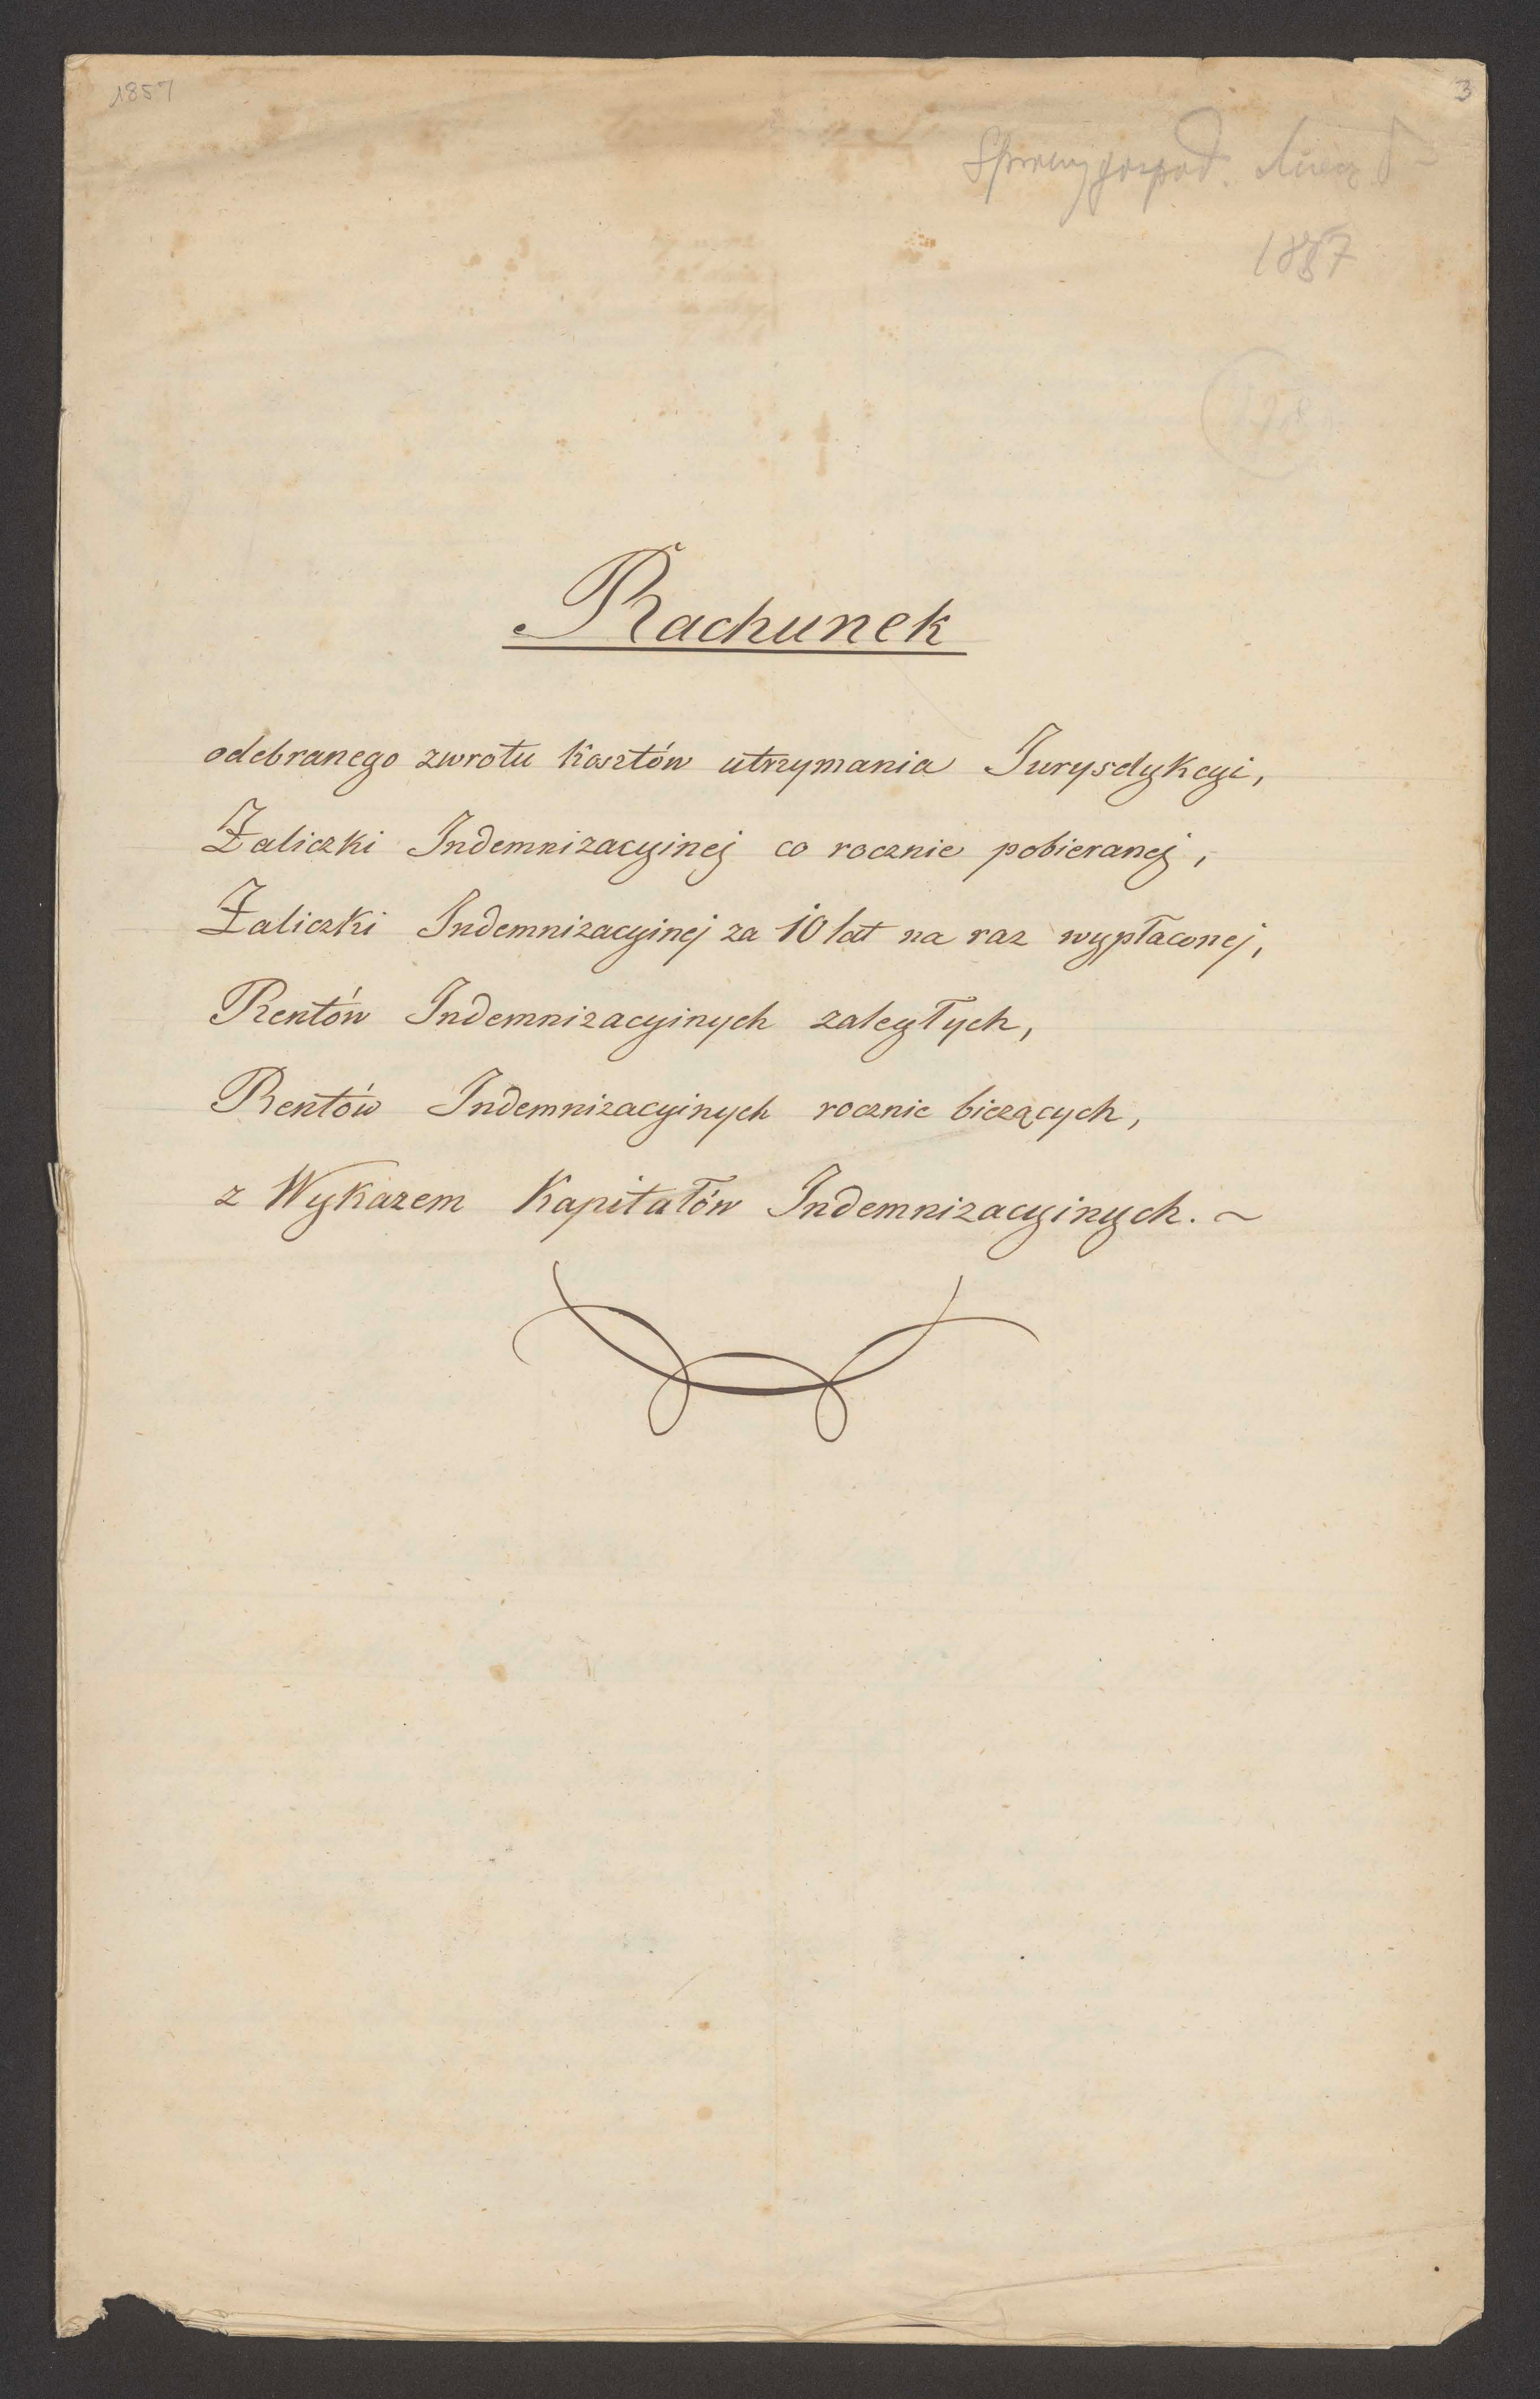 1857
3
Sprawy gospod.
1857
Rachunek
odebranego zwrotu kosztów utrzymania Jurysdykcyi,
Zaliczki Indemnizacyinej co rocznie pobieranej,
Zaliczki Indemnizacyinej za 10 lat na raz wypłaconej,
Rentów Indemnizacyinych zaległych,
Rentów Indemnizacyinych rocznie bieżących,
z Wykazem Kapitałów Indemnizacyinych. ~